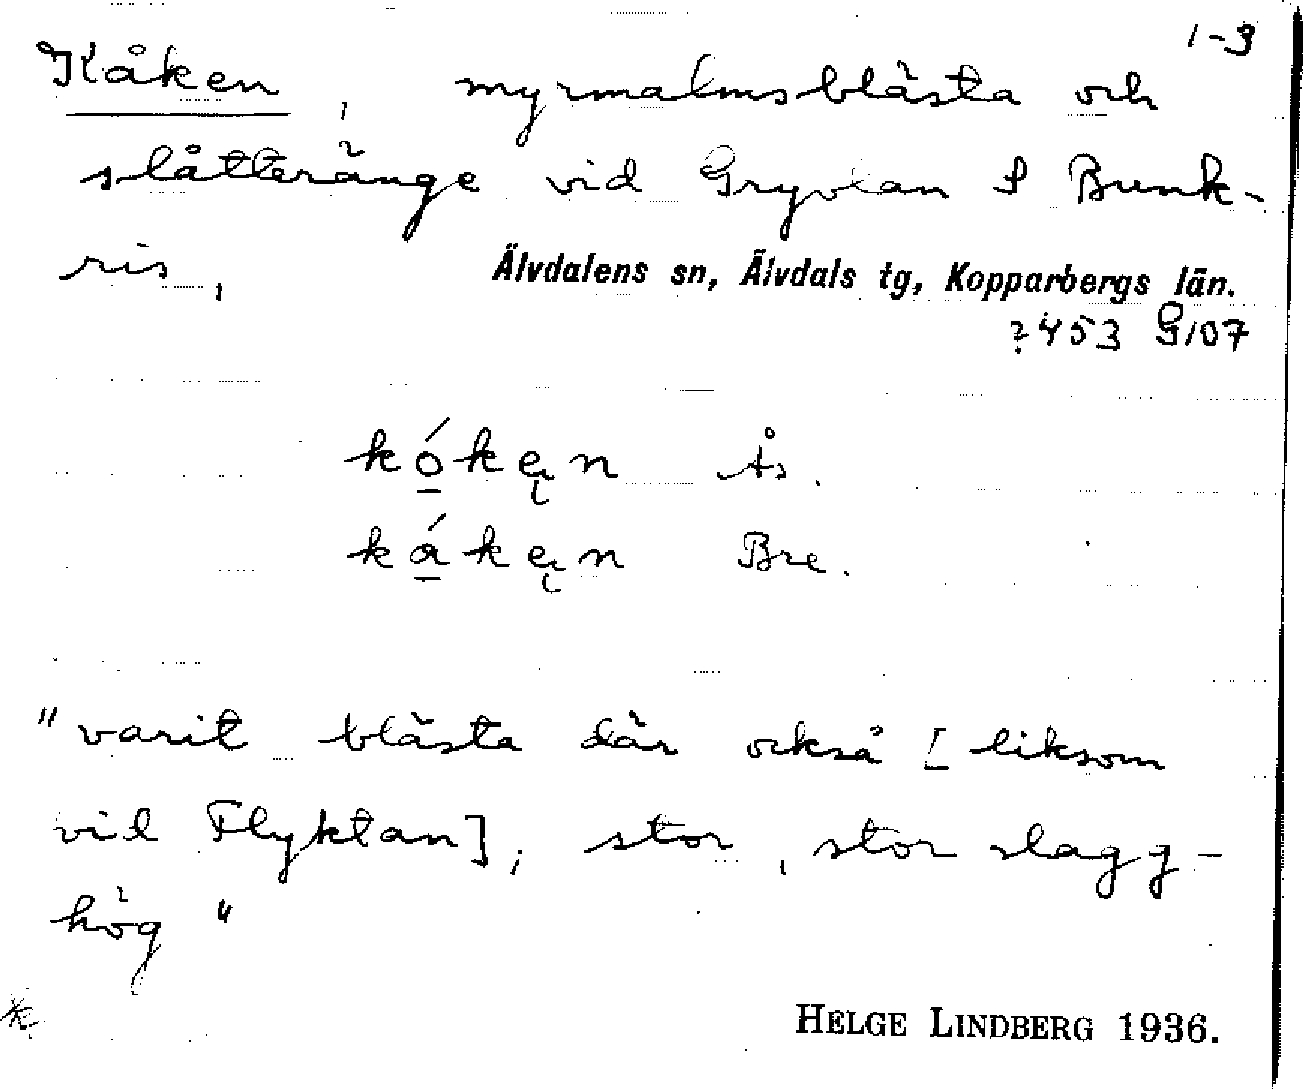 1-3
Kåken, myrmalmsblästa och
slåtteränge vid Gryvlan S Bunk-
ris,
Älvdalens sn, Älvdals tg, Kopparbergs län.
?453 G107
kó̲kęn Ås.
ká̲kęn Bre.
"varit blästa där också [liksom
vid Flyktan], stor, stor slagg-
hög"
HELGE LINDBERG 1936.